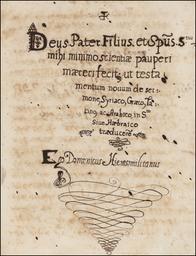 Deus Pater Filius, et Spũs. S.
mihi minimo scientiæ pauperi
fecit, ut testa
mentum nouum de ser-
mone, Syriaco, Græco, La-
tino, ac Arabico, in
siue Hæbraico
traducere
Ego Dominicus Hierosolimitanus